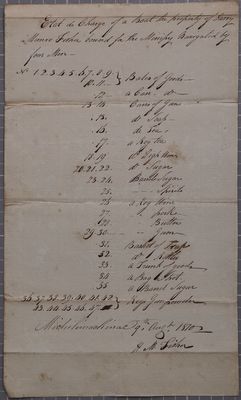 Etat de Charge of a Boat the property of Henry
Munro Fisher bound for the Missisipy Navigated by
four Men
No 1.2.3.4.5.6.7.8.9
10.11. Bales of Goods
12. a Case do
13.14. Cases of Guns
15. do Soap
16. do Tea
17. a Keg
18.19. do Port Wine
20.21.22. do Sugar
23.24. Barrels Sugar
25. Spirits
26. a Keg Wine
27. Pork
28. Butter
29.30
31. Basket of
32. do Kettles
33. a Trunk of goods
34. a Bag
35. a Barrel Sugar
36.37.38.39.40.41.42
43.44.45.46.47 Kegs Gunpowder
Michilimackinac Augt. 1810
H. M. Fisher